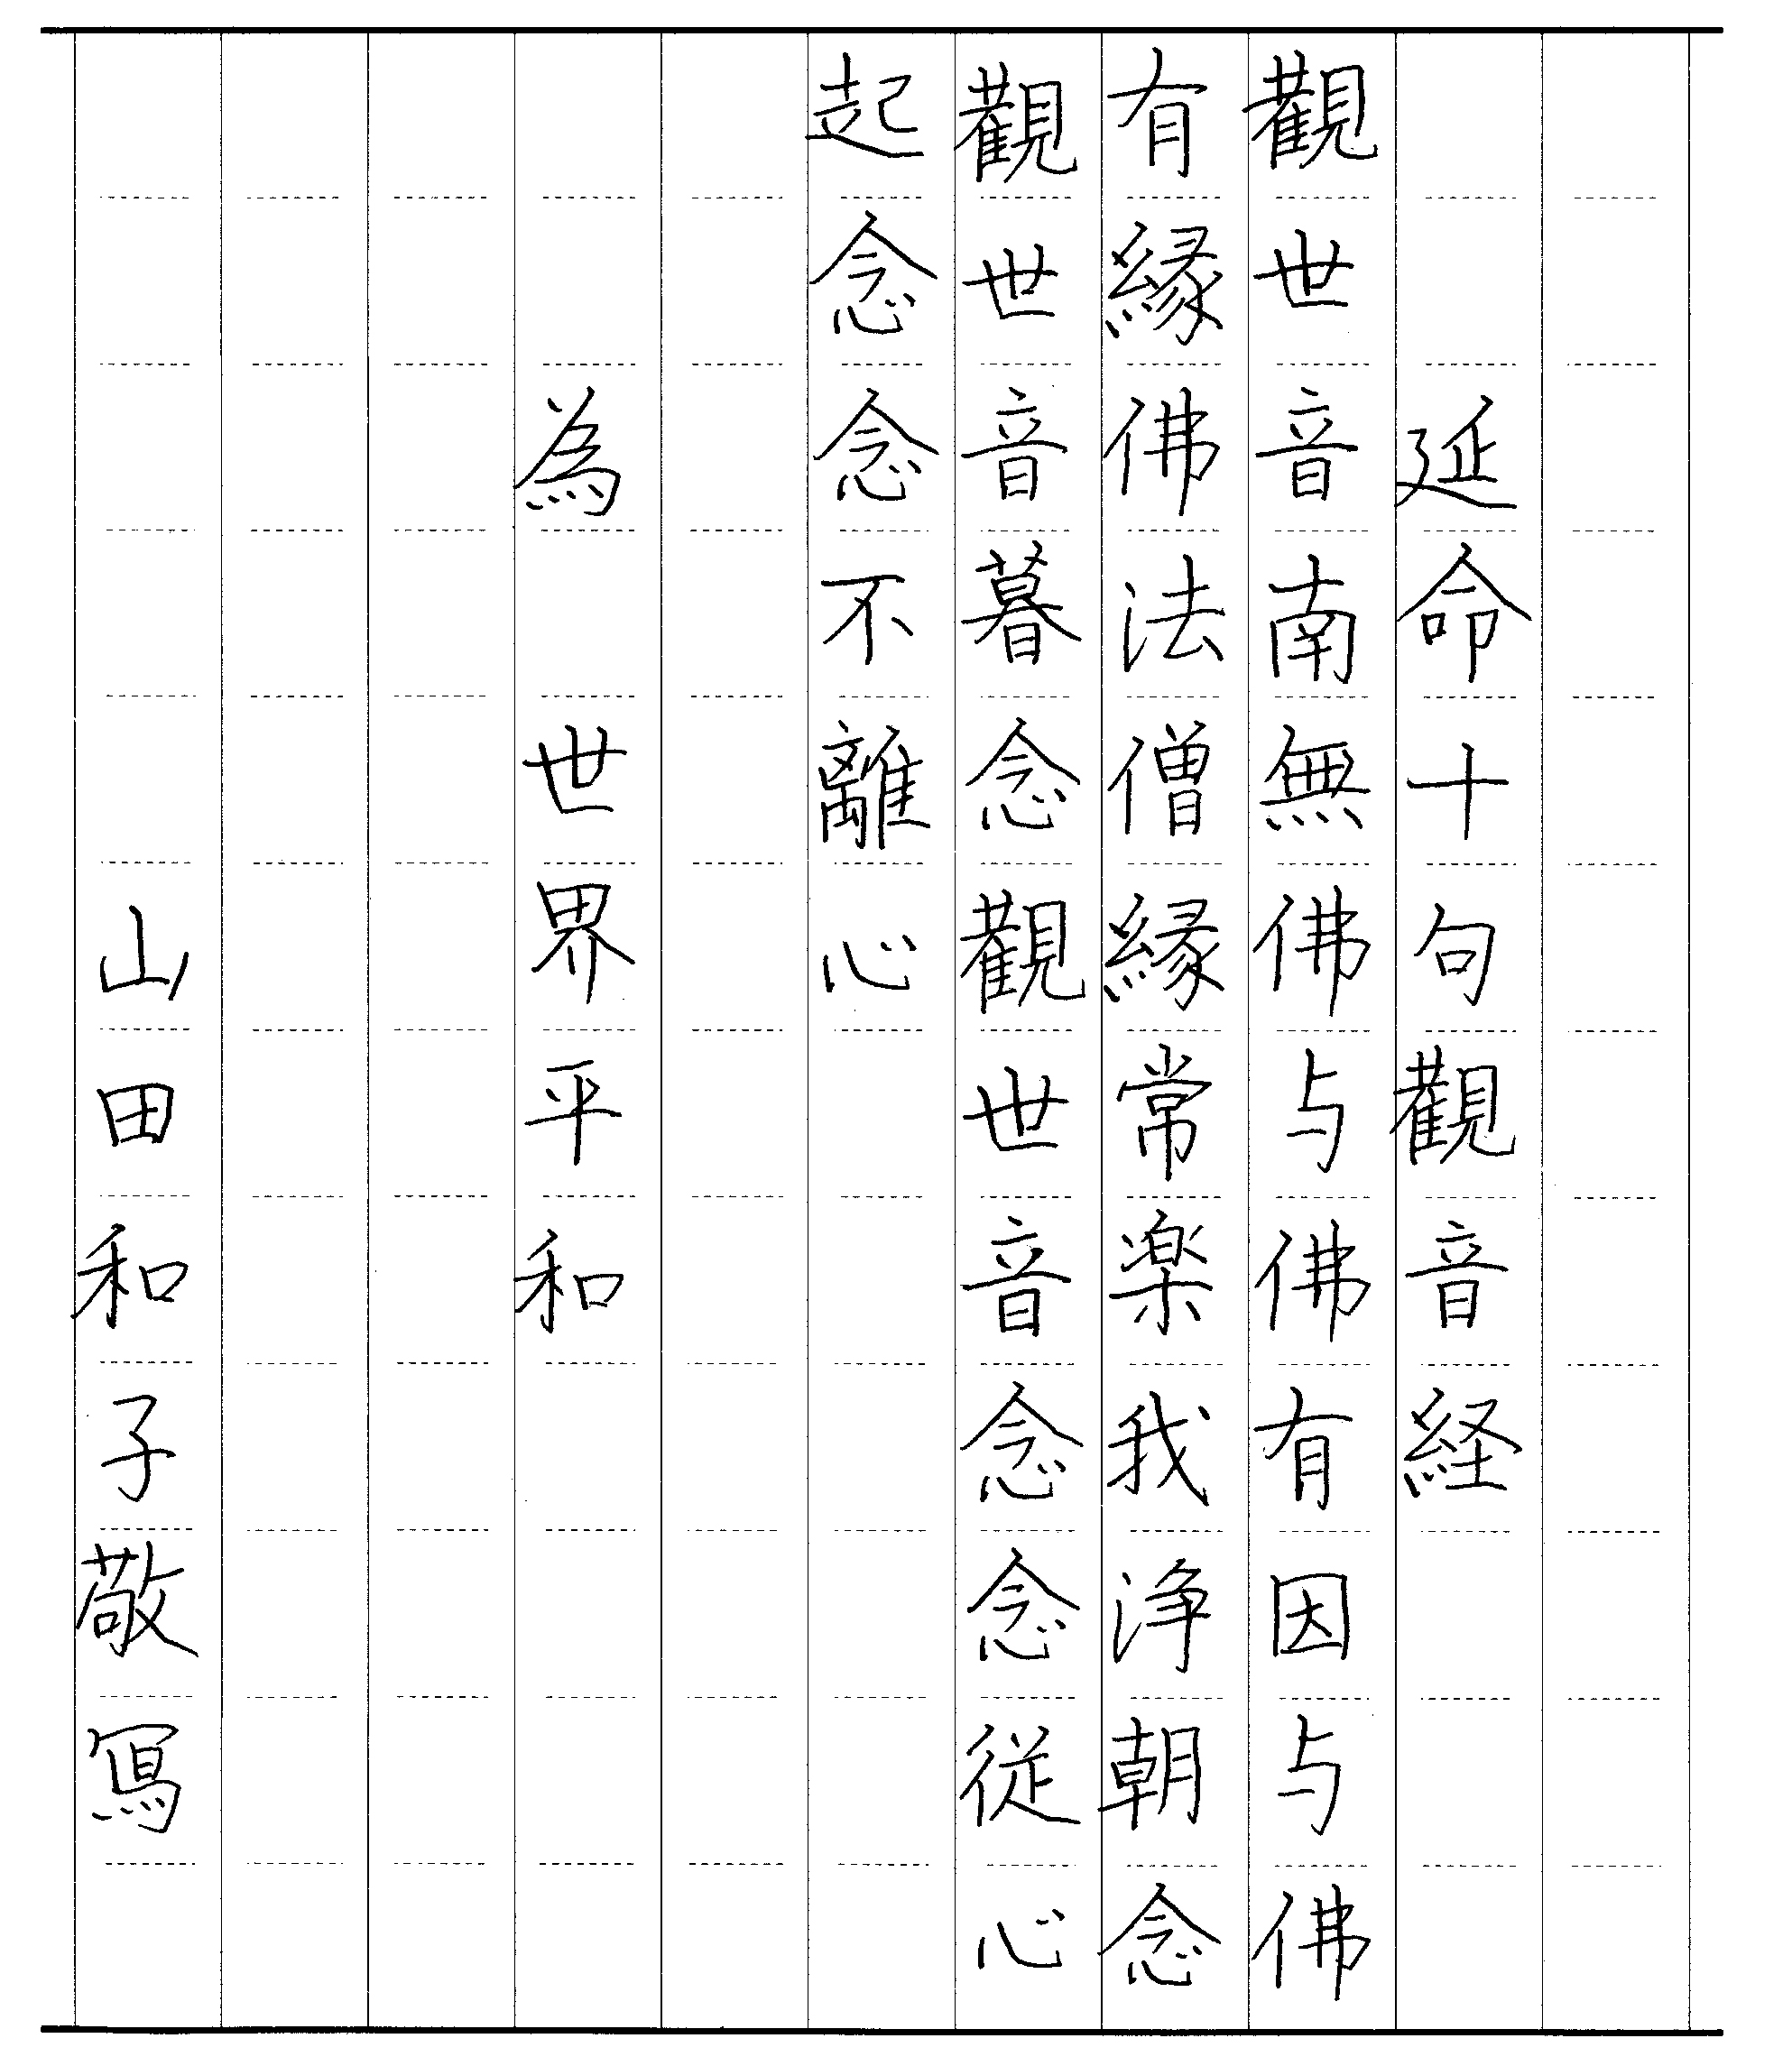 延命十句觀音経
觀世音南無佛与佛有因与佛
有縁佛法僧縁常楽我浄朝念
觀世音暮念觀世音念念従心
起念念不離心
為　世界平和
山田和子敬写